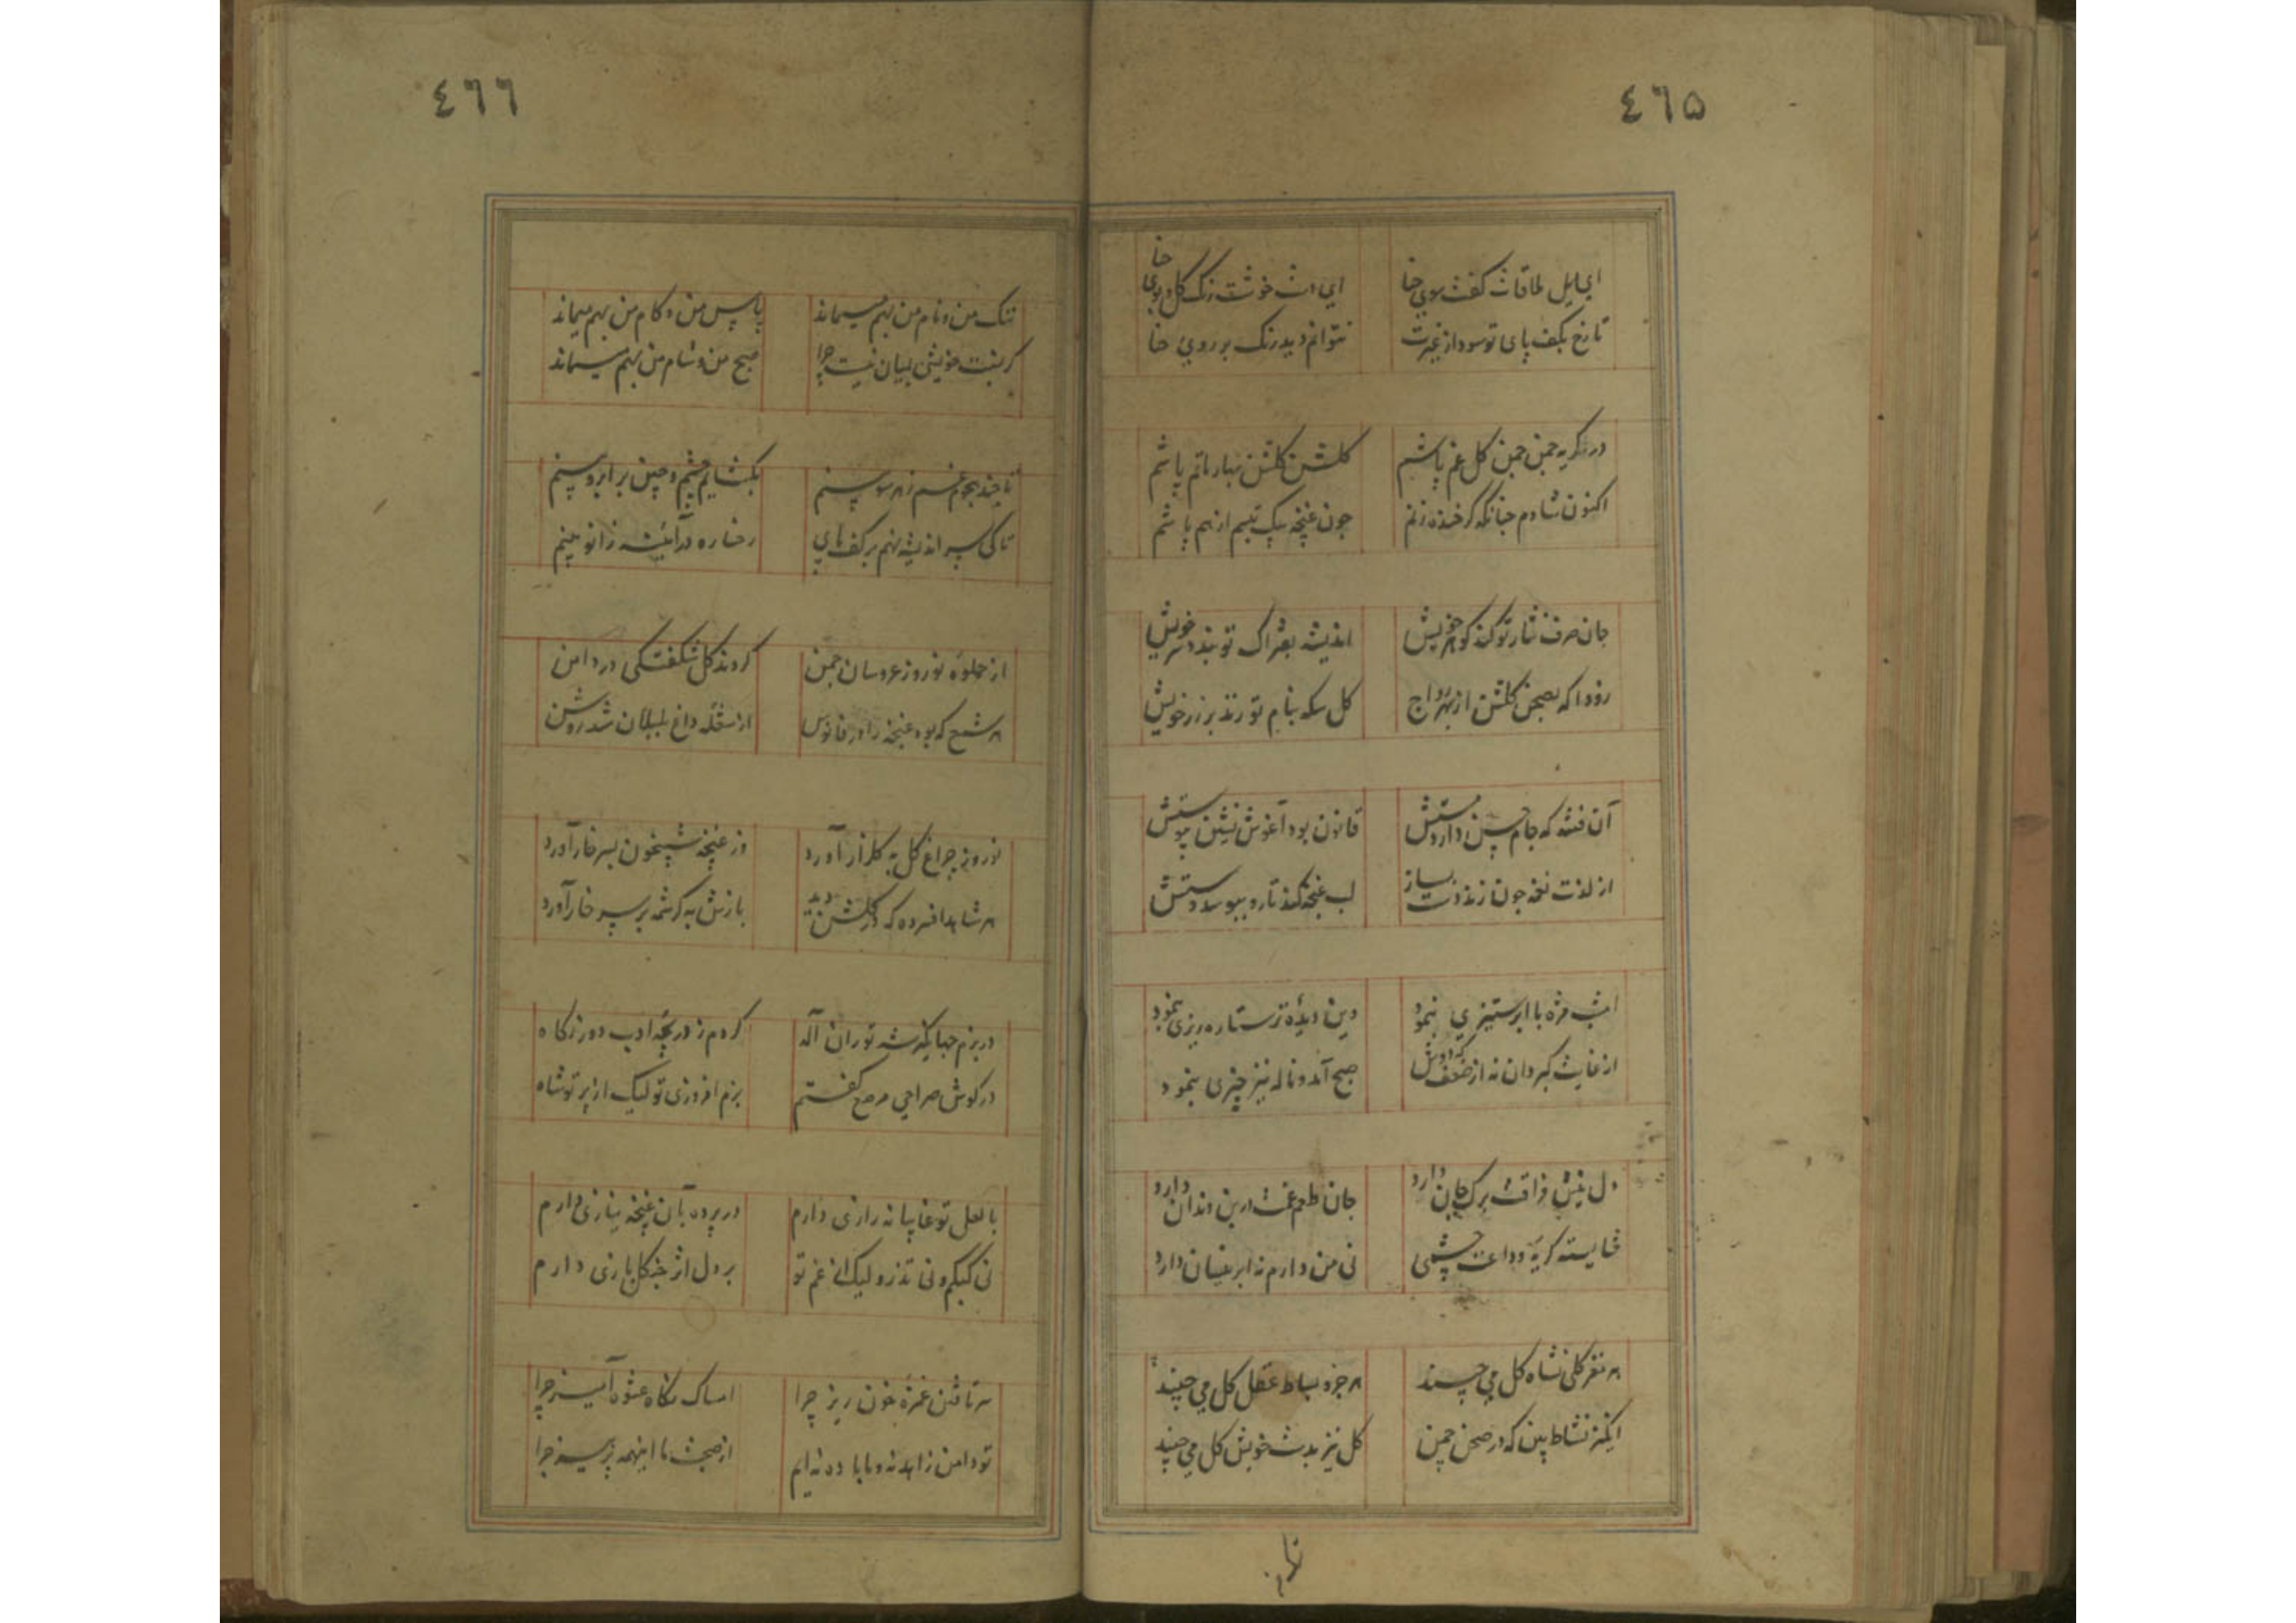 ٤٦٥
ای لیل طاقات کفت سوی حنا
ای دست خوشت رنک کل و بوی حنا
تا رخ بکف پای تو سود از غیرت
نتوانم دید رنک بر روی حنا
در کریه چمن چمن کل غم پاشم
کلشن کلشن بهار ماتم پاشم
اکنون شادم چنانکه کر خنده زنم
چون غنچه بیک تبسم از هم پاشم
جان صرف نثار تو کند کوهر خویش
اندیشه بفتراک تو بندد سر خویش
زودا که بصحن کلشن از بهر رواج
کل سکه بنام تو زند بر زر خویش
آن فتنه که جام حسن دارد مستش
قانون بود آغوش نشین پیوستش
از لذت نغمه چون زند دست بساز
لب غنچه کند تار و ببوسد دستش
امشب مژه با ابر ستیزی بنمود
وین دیدهٔ تر ستاره ریزی بنمود
از غایت کبر دان نه از ضعف که دوش
صبح آمد و ناله نیز چیزی بنمود
دل نیش فراقت برک جان دارد
جان طعم غمت درین دندان دارد
شایسته کریهٔ وداعت چشمی
نی من دارم نه ابر نیسان دارد
هر نغز کلی نشاه کل می چیند
هر جزو بساط عقل کل می چیند
انکیز نشاط بین که در صحن چمن
کل نیز بدست خویش کل می چیند
٤٦٦
ننک من و نام من بهم میماند
یاس من و کام من بهم میماند
کر بنت خویشی بمیان نیست چرا
صبح من و شام من بهم میماند
تا چند هجوم غم ز هر سو بینم
بکشایم چشم و چین بر ابرو بینم
تا کی سر اندیشه نهم بر کف پای
رخساره در آئینه زانو بینم
از جلوهٔ نوروز عروسان چمن
کردند کل شکفتکی در دامن
هر شمع که بود غنچه را در فانوس
از شعله داغ بلبلان شد روشن
نوروز چراغ کل به کلزار آورد
وز غنچه شبیخون بسر خار آورد
هر شاهد افسرده که در کلشن دید
بازش به کرشمه بر سر کار آورد
در بزم جهانکیر شه توران اله
کردم ز دریچهٔ ادب دور نکاه
در کوش صراحی مرصع کفتم
بزم افروزی تو لیک از پرتو شاه
با لعل تو غایبانه رازی دارم
در پرده بآن غنچه نیازی دارم
نی کبکم و نی تذرو لیک از غم تو
بر دل اثر چنکل بازی دارم
سر تافتن غمزهٔ خون ریز چرا
امساک نکاه عشوه آمیز چرا
تو دامن زاهد نه و ما باده نه ایم
از صحبت ما اینهمه پرهیز چرا